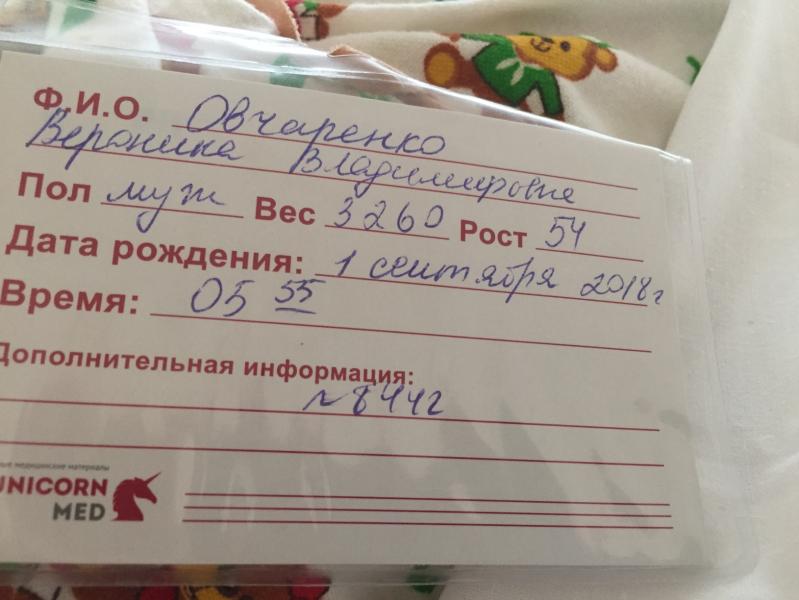 Ф.И.О. Овчаренко
Вероника Владимировна
Пол муж Вес 3260 Рост 54
Дата рождения: 1 сентября 2018г
Время: 05 55
Дополнительная информация:
№8442
ные медицинские материалы
UNICORN
MED